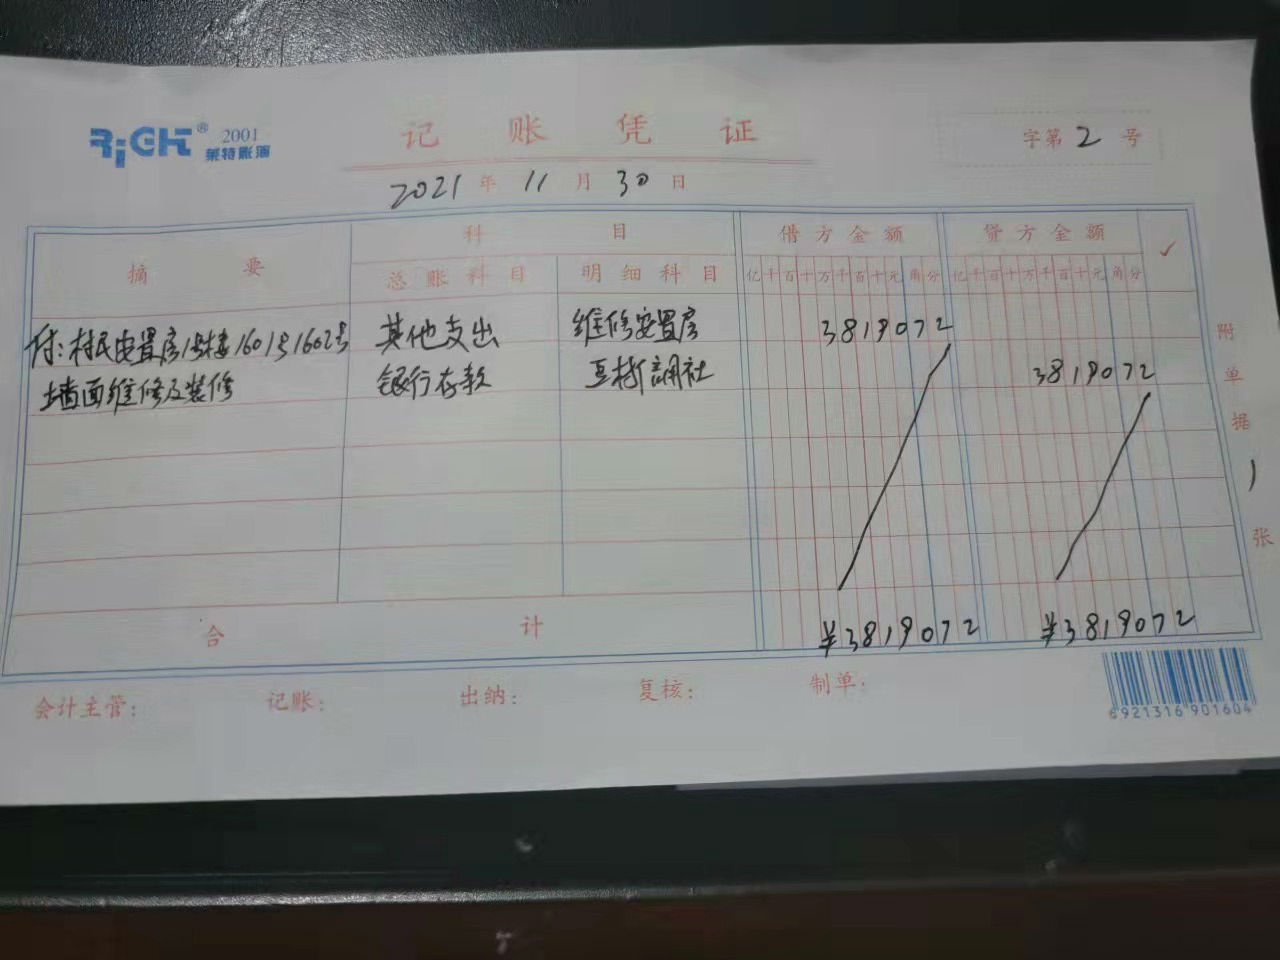 RiGHT® 2001
莱特账簿
记账凭证
字第2号
2021年11月30日
摘要
科目
借方金额
贷方金额
✓
总账科目
明细科目
亿千百十万千百十元角分
亿千百十万千百十元角分
付:村民安置房1号楼1601号1602号
其他支出
维修安置房
3819072
墙面维修及装修
银行存款
信用社
3819072
附单据1张
合计
¥3819072
¥3819072
会计主管:
记账:
出纳:
复核:
制单:
6921316901604